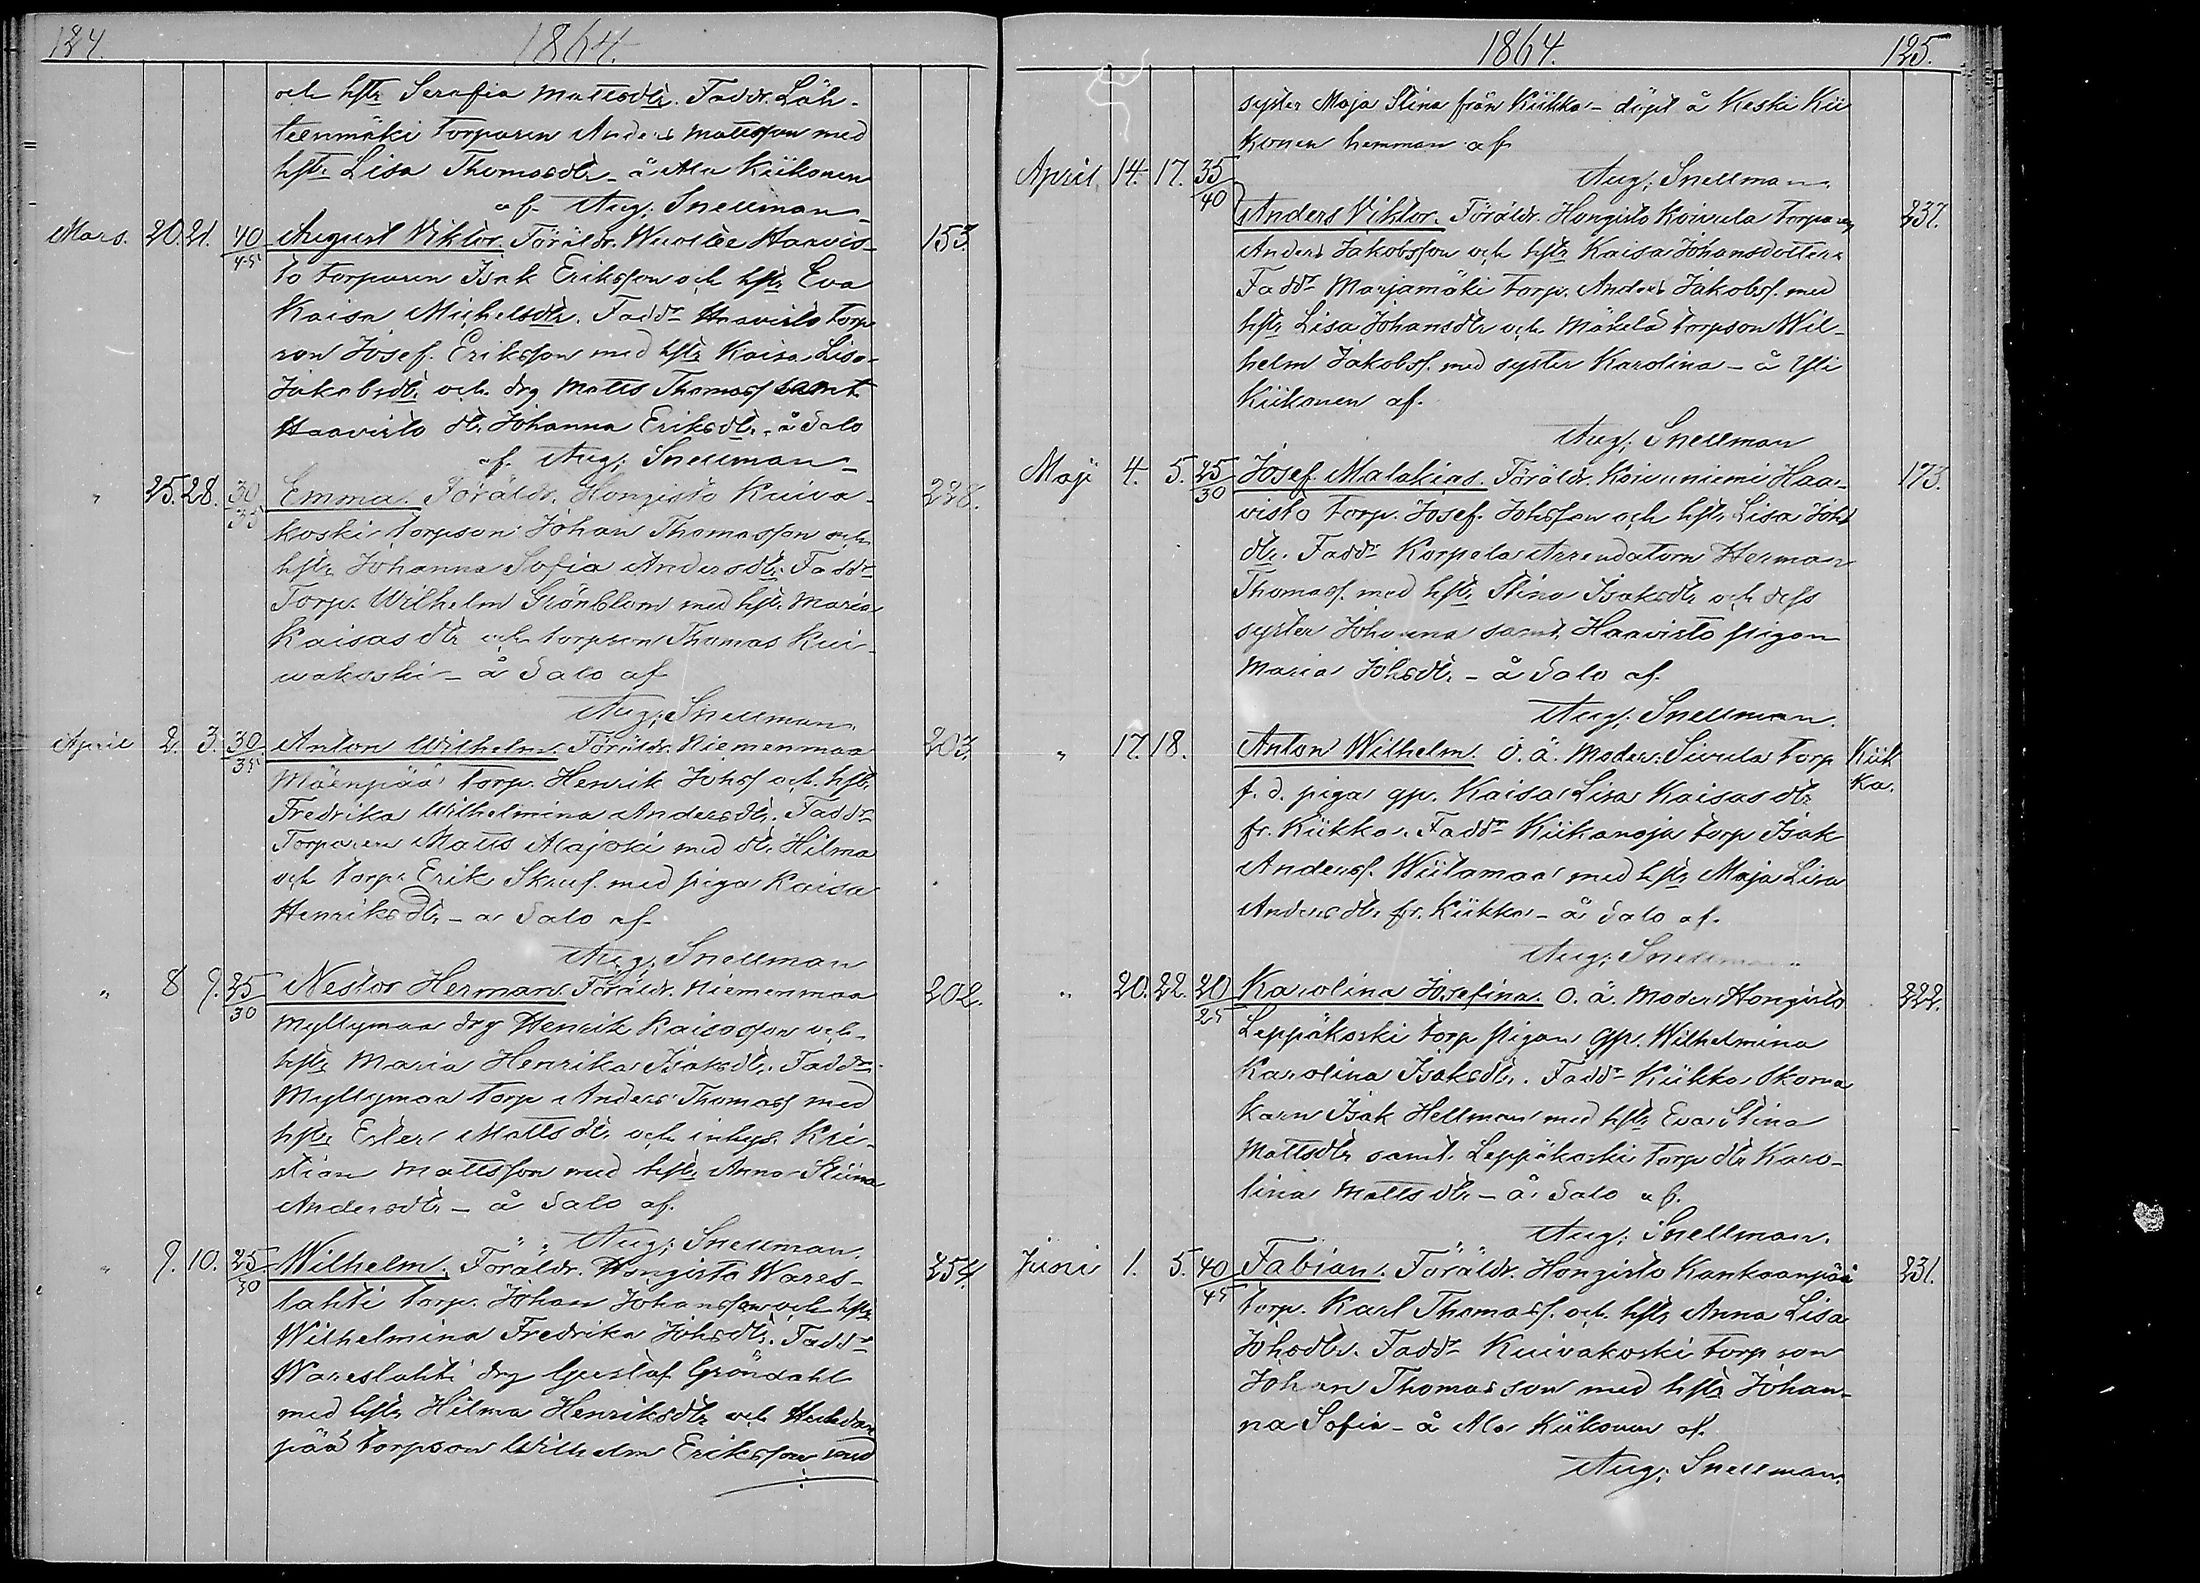 124. 1864.
och hstr Serafia Mattsdtr. Faddr. Läh-
teenmäki torparen Anders Mattsson med
hstr Lisa Thomasdtr - å Ala Kiikonen
af Aug. Snellman
Mars. 20. 21. 40/45 August Viktor. Föräldr. Haavis- 153.
to torparen Isak Eriksson och hstr Eva
Kaisa Michelsdtr. Faddr Haavisto torp
son Josef Eriksson med hstr Kaisa Lisa
Jakobsdtr. och drg Matts Thomass samt
Haavisto dtr. Johanna Eriksdtr. å Salo
af. Aug. Snellman
" 25. 28. 30/35 Emma. Föräldr. Hongisto Kuiva- 228.
koski torpson Johan Thomasson och
hstr Johanna Sofia Andersdtr. Faddr
Torp. Wilhelm Grönblom med hstr. Maria
Kaisasdtr och torpson Thomas Kui-
wakoski - å Salo af
Aug. Snellman.
April 2. 3. 30/35 Anton Wilhelm. Föräldr. Niemenmaa 203.
Mäenpää torp. Henrik Johss och hstr.
Fredrika Wilhelmina Andersdtr. Faddr
Torparen Matts Alajoki med dtr. Hilma
och torp. Erik Skruf. med piga Kaisa
Henriksdtr - å Salo af
Aug. Snellman
" 8 9. 25/30 Nestor Herman. Föräldr. Niemenmaa 202.
Myllymaa drg Henrik Kaisasson och
hstr Maria Henrika Isaksdtr. Faddr
Myllymaa torp Anders Thomass med
hstr Ester Mattsdtr och inhys. Kri-
stian Mattsson med hstr Anna Stina
Andersdtr - å Salo af.
Aug. Snellman.
" 9. 10. 25/30 Wilhelm. Föräldr. Hongisto Wares- 254.
lahti torp. Johan Johansson och hstr
Wilhelmina Fredrika Johsdtr. Faddr
Wareslahti drg Gustaf Gröndahl
med hstr Hilma Henriksdtr och
pää torpson Wilhelm Eriksson med
1864. 125.
syster Maja Stina från Kiikka - döpt å Keski Kii
konen hemman af
Aug. Snellman.
April. 14. 17. 35/40 Anders Viktor. Föräldr. Hongisto Koivula torparen 237.
Anders Jakobsson och hstr Kaisa Johansdotter
Faddr Marjamäki torp. Anders Jakobss. med
hstr Lisa Johansdtr och Mäkelä torpson Wil-
helm Jakobss. med syster Karolina - å Yli
Kiikonen af.
Aug. Snellman
Maji 4. 5. 25/30 Josef Malakias. Föräldr. Koivuniemi Haa- 173.
visto torp. Josef Johsson och hstr. Lisa Johs
dtr. Faddr Korpela Arrendatorn Herman
Thomass. med hstr Stina Isaksdtr och dess
syster Johanna samt Haavisto pigan
Maria Johsdtr. - å Salo af.
Aug. Snellman.
" 17. 18. Anton Wilhelm. O. ä. Moder: Sivula torp Kiik
f. d. piga gp. Kaisa Lisa Kaisasdtr ka.
fr. Kiikka. Faddr Kiikanoja torp Isak
Anderss. Wiitamaa med hstr Maja Lisa
Andersdtr fr. Kiikka - å Salo af.
Aug. Snellman
" 20. 22. 20/25 Karolina Josefina. O. ä. Moder Hongisto 222.
Leppäkoski torp pigan gp. Wilhelmina
Karolina Isaksdtr. Faddr Kiikka Skoma
karn Isak Hellman med hstr Eva Stina
Mattsdtr samt Leppäkoski torp dtr Karo-
lina Mattsdtr - å Salo af.
Aug. Snellman.
Juni 1. 5. 40/45 Fabian. Föräldr. Hongisto Kankaanpää 231.
torp. Karl Thomass. och hstr Anna Lisa
Johsdtr. Faddr Kuivakoski torpson
Johan Thomasson med hstr Johan-
na Sofia - å Ala Kiikonen af.
Aug. Snellman.